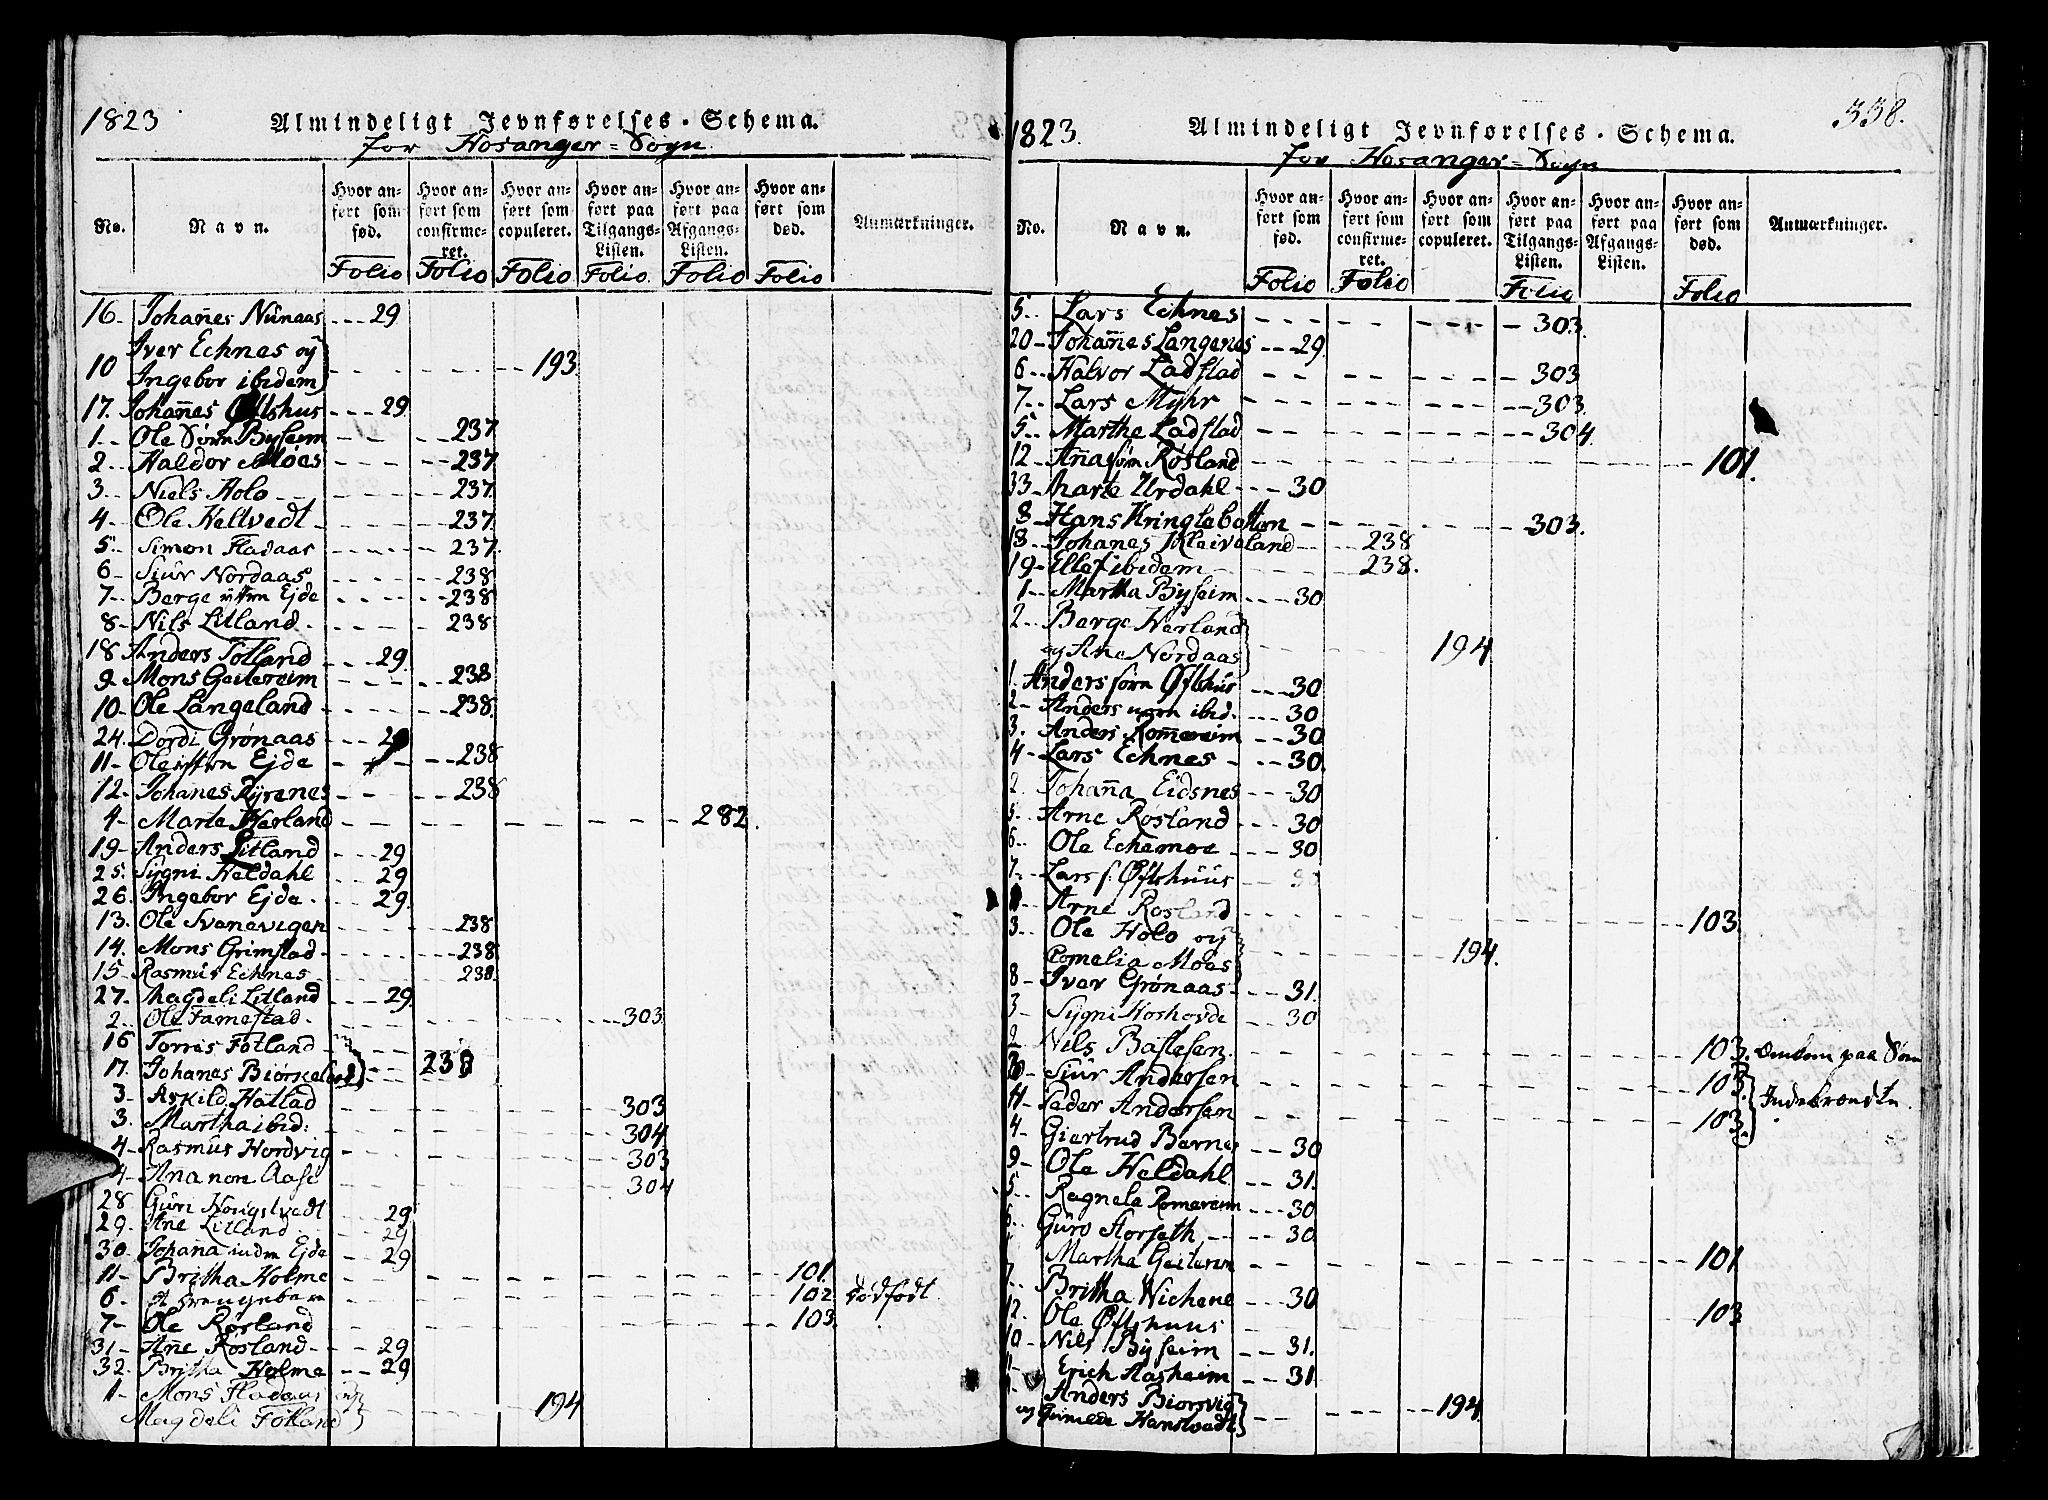 1823
Almindeligt Jevnførelses-Schema.
for Hosanger-Sogn.
No.
Navn.
Hvor anført som fød.
Hvor anført som confirmeret.
Hvor anført som copuleret.
Hvor anført paa Tilgangs-Listen.
Hvor anført paa Afgangs-Listen.
Hvor anført som død.
Anmærkninger.
Folio Folio Folio Folio Folio Folio
16 Johañes Nünaas 29
Iver Echnes og
10 Ingebor ibidem 193
17. Johañes Øftshus 29
1 Ole Sørn Byseim 237
2 Haldor Moes 237
3 Niels Holo 237
4 Ole Heltvedt 237
5 Simon Fladaas 237
6 Siür Nordaas 238
7 Berge ytten Ejde 238
8 Nils Litland 238
18 Anders Totland 29
9 Mons Geitereim 238
10 Ole Langeland 238
24. Dordi Grønaas
11 Ole Ejde 238
12 Johanes Ryrenes 238
4 Marte Herland 282
19 Anders Litland 29
25. Sygni Heldahl 29
26. Ingebor Ejde 29
13. Ole Svenevigen 238
14. Mons Grimstad 238
15 Rasmus Echnes 238
27 Magdeli Litland 29
2 Ole Famestad 303
16 Torres Fotland
17. Johanes 238
3 Askild Hatlad 303
3. Martha ibid: 304
4 Rasmus Hordvig 303
4 Ana 304
28 Güri Kongslvedt 29
29. Ane Litland 29
30 Johaña indre Ejde 29
11 Britha Holme 101
6 et Drengebarn 102 dødfødt
7 Ole Røsland 103
31 Añe Rosland 29
32 Britha Holme 29
1 Mons Fladaas og
Magdeli Fotland 194
338.
1823.
Almindeligt Jevnførelses-Schema.
for Hosanger-Sogn
No.
Navn.
Hvor anført som fød.
Hvor anført som confirmeret.
Hvor anført som copuleret.
Hvor anført paa Tilgangs-Listen.
Hvor anført paa Afgangs-Listen.
Hvor anført som død.
Anmærkninger.
Folio Folio Folio Folio
5 Lars Echnes 303
20 Johañes Langenes 29
6 Halvor Ladstad 303
7 Lars Myhr 303
5 Marthe Ladstad 304
12 Aña Røsland 101
33 Marte Urdahl 30
8 Hans Kringlebotten 303
18 Johanes Kleiveland 238
19 Ellef ibidem 238
1 Martha Byseim 30
2 Berge Herland
og Ane Nordaas 194
1. Anders sørn Øftshüs 30
2 Anders norn ibid. 30
3. Anders Romereim 30
4 Lars Echnes 30
2. Johaña Eidsnes 30
5 Arne Røsland 30
6 Ole Echemoe 30
7 Lars s. Øftshuus 30
Arne Rosland 103
3. Ole Holo og
Cornelia Moes 194
8 Iver Grønaas 31
3 Sygni Hoshovde 30
2 Nils Bastesen 103. Omkom paa Søen
Siür Andersen 103
11 Peder Andersen 103 Indebrændte
4 Giertrud Bernes 30
9 Ole Heldahl 31
5 Ragnela Romereim 30
6 Güro Storseth 30
Martha Geiterem 101
7 Britha Nichene 30
12. Ole Øftshuus 103
10 Nils Byseim 31
11 Erich Aasheim 31
Anders Biorsvig
og 194